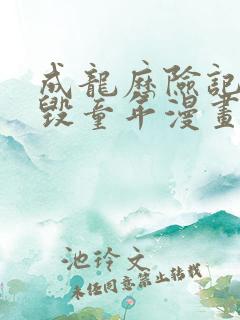 成龍歷險記
毀童年漫畫
池玲文
未任同意禁止转载